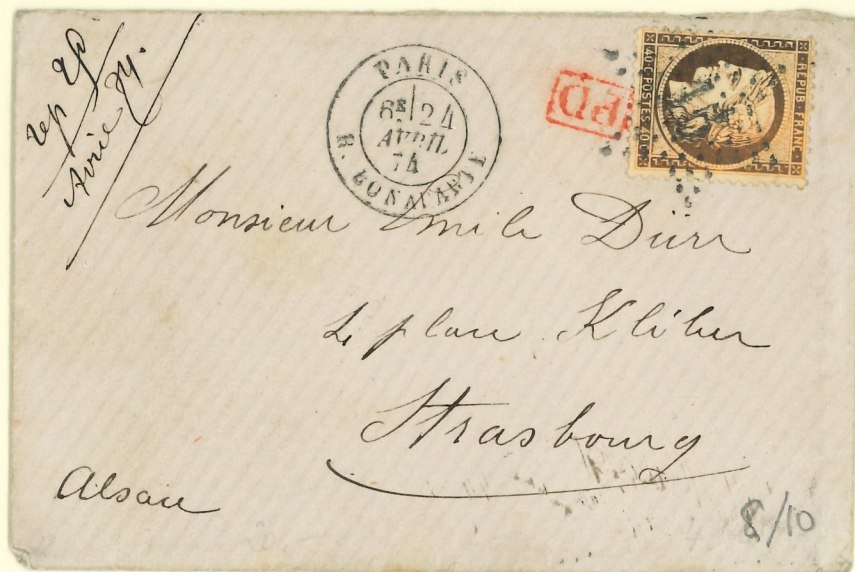 rep 28
Avril 74.
PARIS
6E 24
AVRIL
74
R. BONAPARTE
PD
REPUB. FRANC.
40 C. POSTES 40 C.
Monsieur Emile Dürr
4 place Kléber
Strasbourg
Alsace
8/10